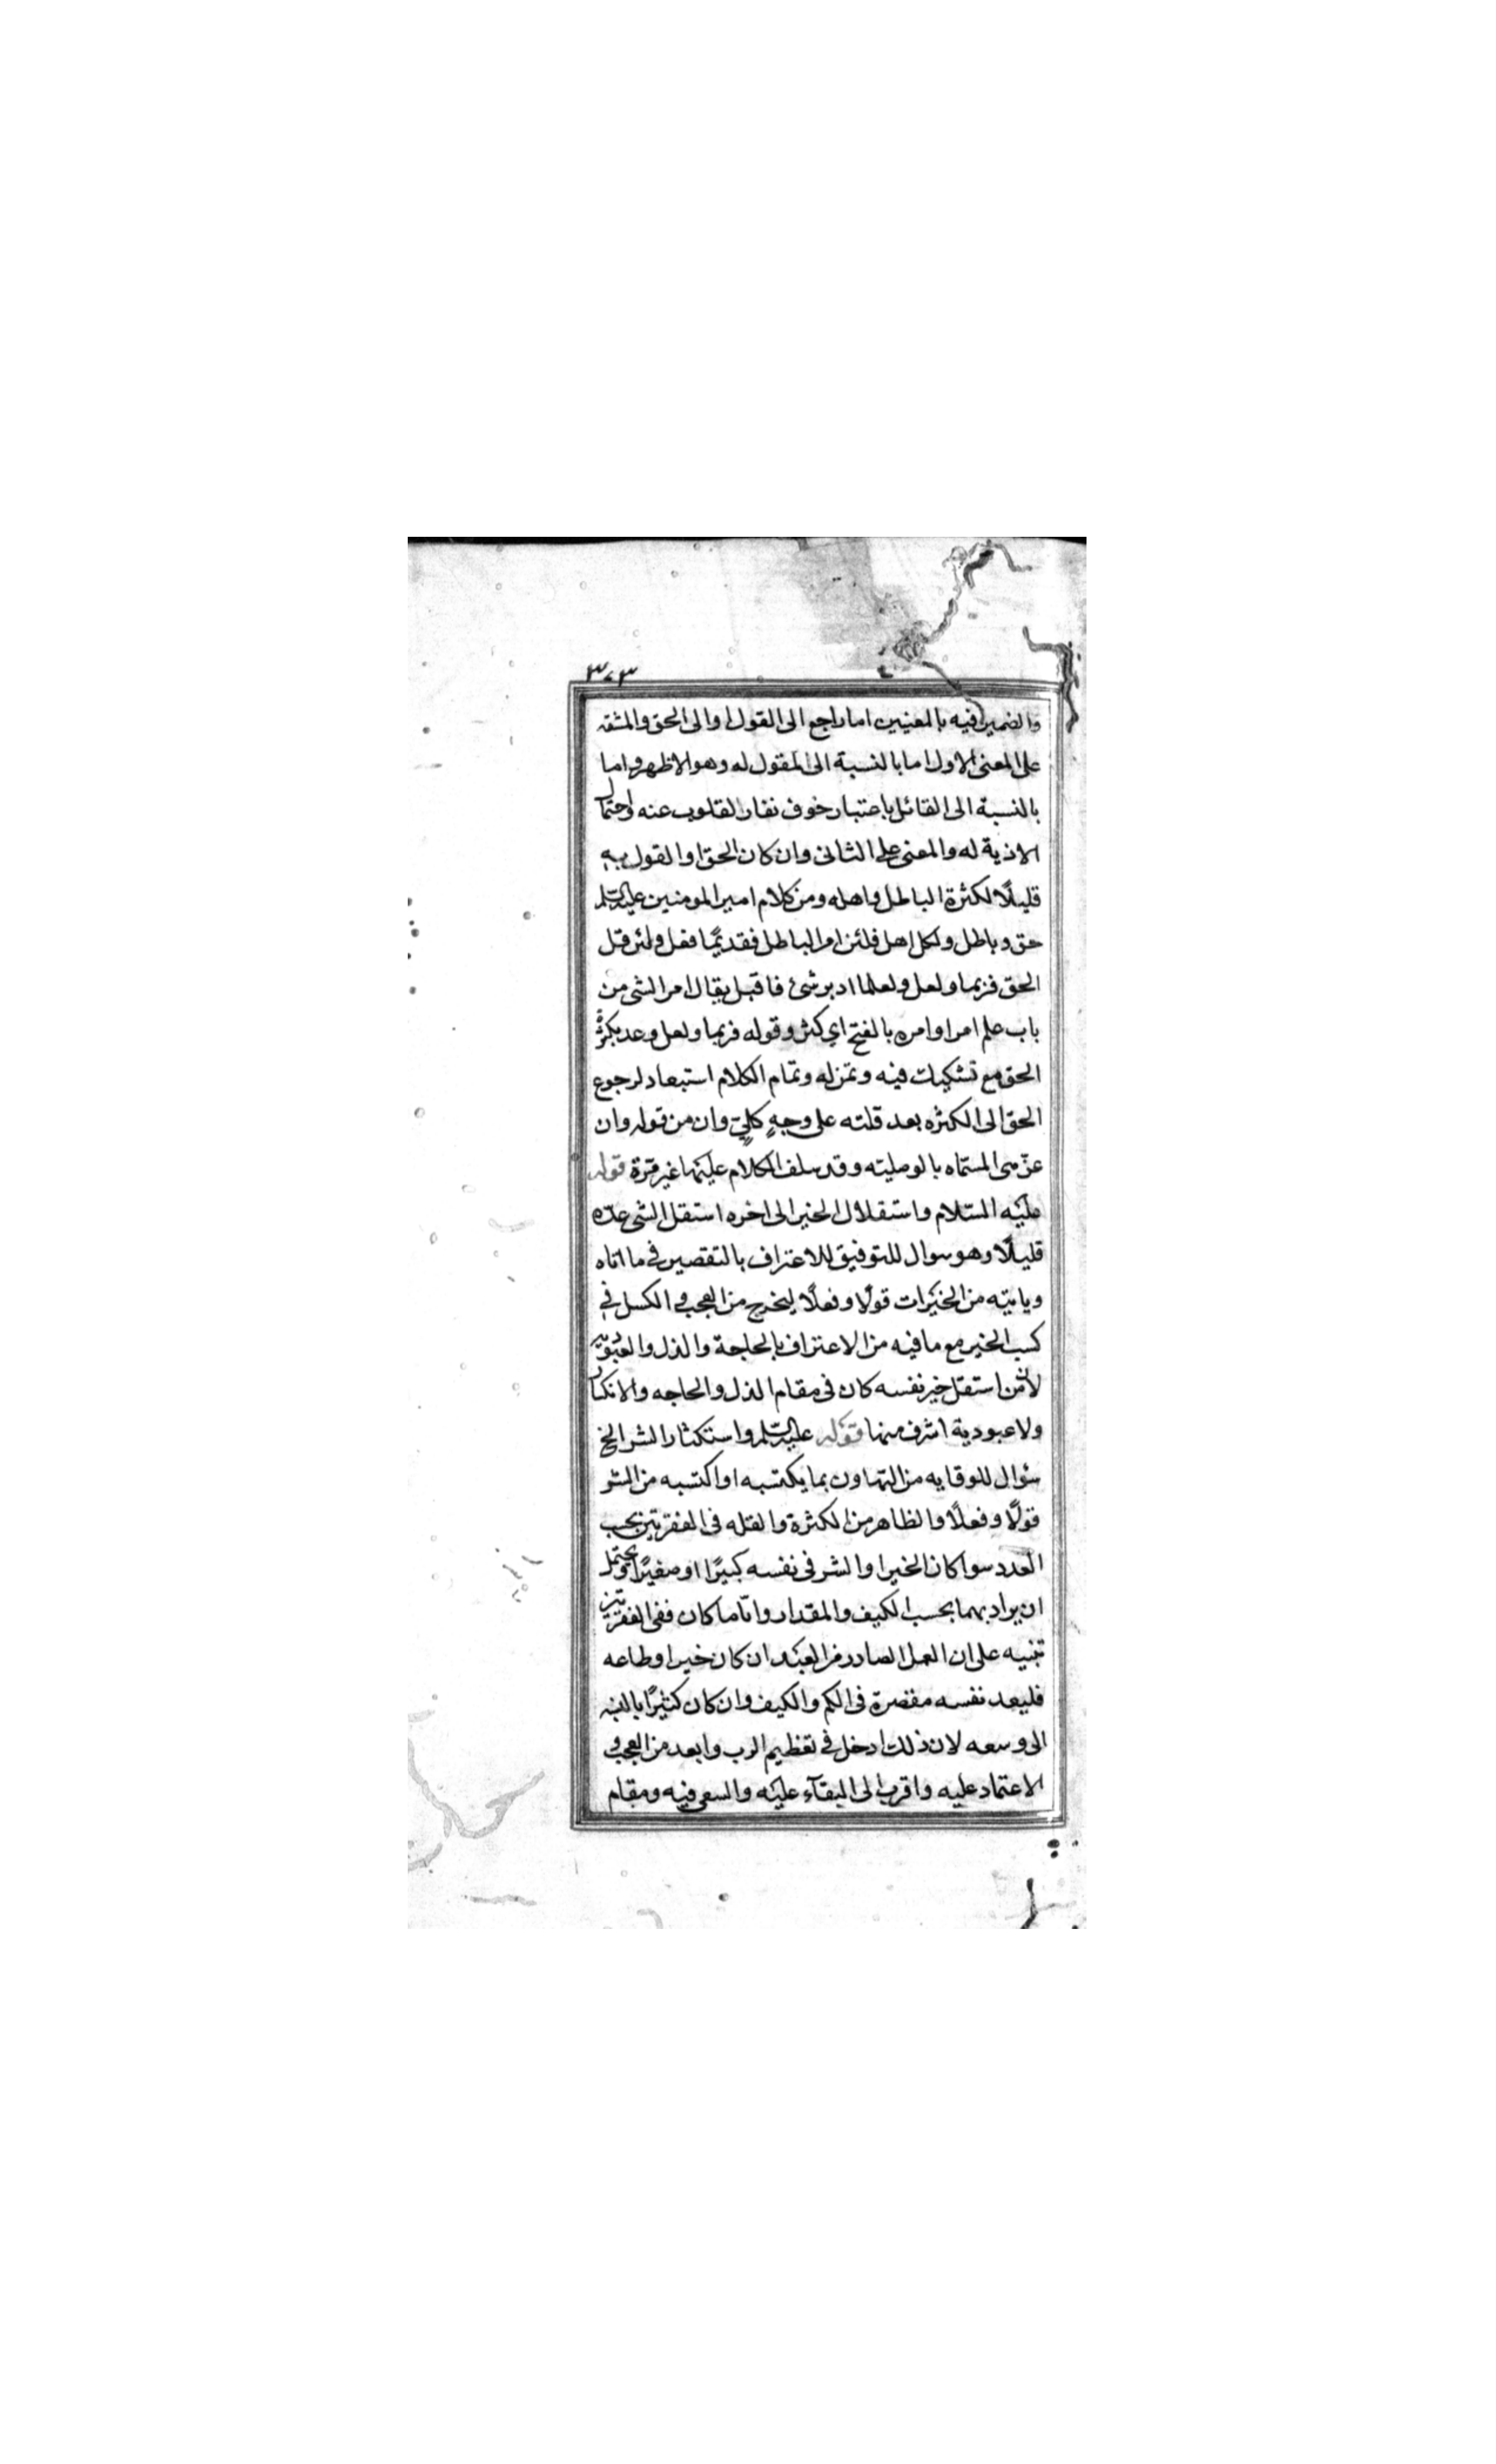 ٣٧٣
والضمير فيه بالمعنيين اما راجع الى القول او الى الحق والمشقه
على المعنى الاول اما بالنسبة الى المقول له وهو الاظهر واما
بالنسبة الى القائل باعتبار خوف نفار القلوب عنه واحتمال
الاذية له والمعنى على الثانى وان كان الحق او القول به
قليلًا لكثرة الباطل واهله ومن كلام امير المومنين عليه السلم
حق وباطل ولكل اهل فلئن امر الباطل فقديمًا فعل ولئن قل
الحق فربما ولعل ولعلما ادبر شئ فاقبل يقال امر الشى من
باب علم امرا وامره بالفتح اي كثر وقوله فربما ولعل وعد بكثرة
الحق مع تشكيك فيه وتمام الكلام استبعاد لرجوع
الحق الى الكثره بعد قلته على وجهٍ كليّ وان من قوله وان
عزّ هى المسماه بالوصليته وقد سلف الكلام عليها غير مرة قوله
عليه السّلام واستقلال الخير الى اخره استقل الشى عدّه
قليلًا وهو سوال للتوفيق للاعتراف بالتقصير فى ما اتاه
وياتيه من الخيرات قولًا وفعلًا ليخرج من العجب والكسل فى
كسب الخير مع ما فيه من الاعتراف بالحاجة والذل والعبودية
لأن من استقل خير نفسه كان فى مقام الذل والحاجه والانكسار
ولا عبودية اشرف منها قوله عليه السلم واستكثار الشر الخ
سؤال للوقايه من التهاون بما يكتسبه او اكتسبه من الشر
قولًا وفعلًا والظاهر من الكثرة والقله فى الفقرتين بحسب
العدد سوا كان الخير او الشر فى نفسه كبيرًا او صغيرًا ويحتمل
ان يراد بهما بحسب الكيف والمقدار وايّاما كان ففى الفقرتين
تنبيه على ان العمل الصادر من العبد ان كان خيرا وطاعه
فليعد نفسه مقصرة فى الكم والكيف وان كان كثيرًا بالنسبه
الى وسعه لان ذلك ادخل فى تعظيم الرب وابعد من العجب و
الاعتماد عليه واقرب الى البقآء عليه والسعى فيه ومقام